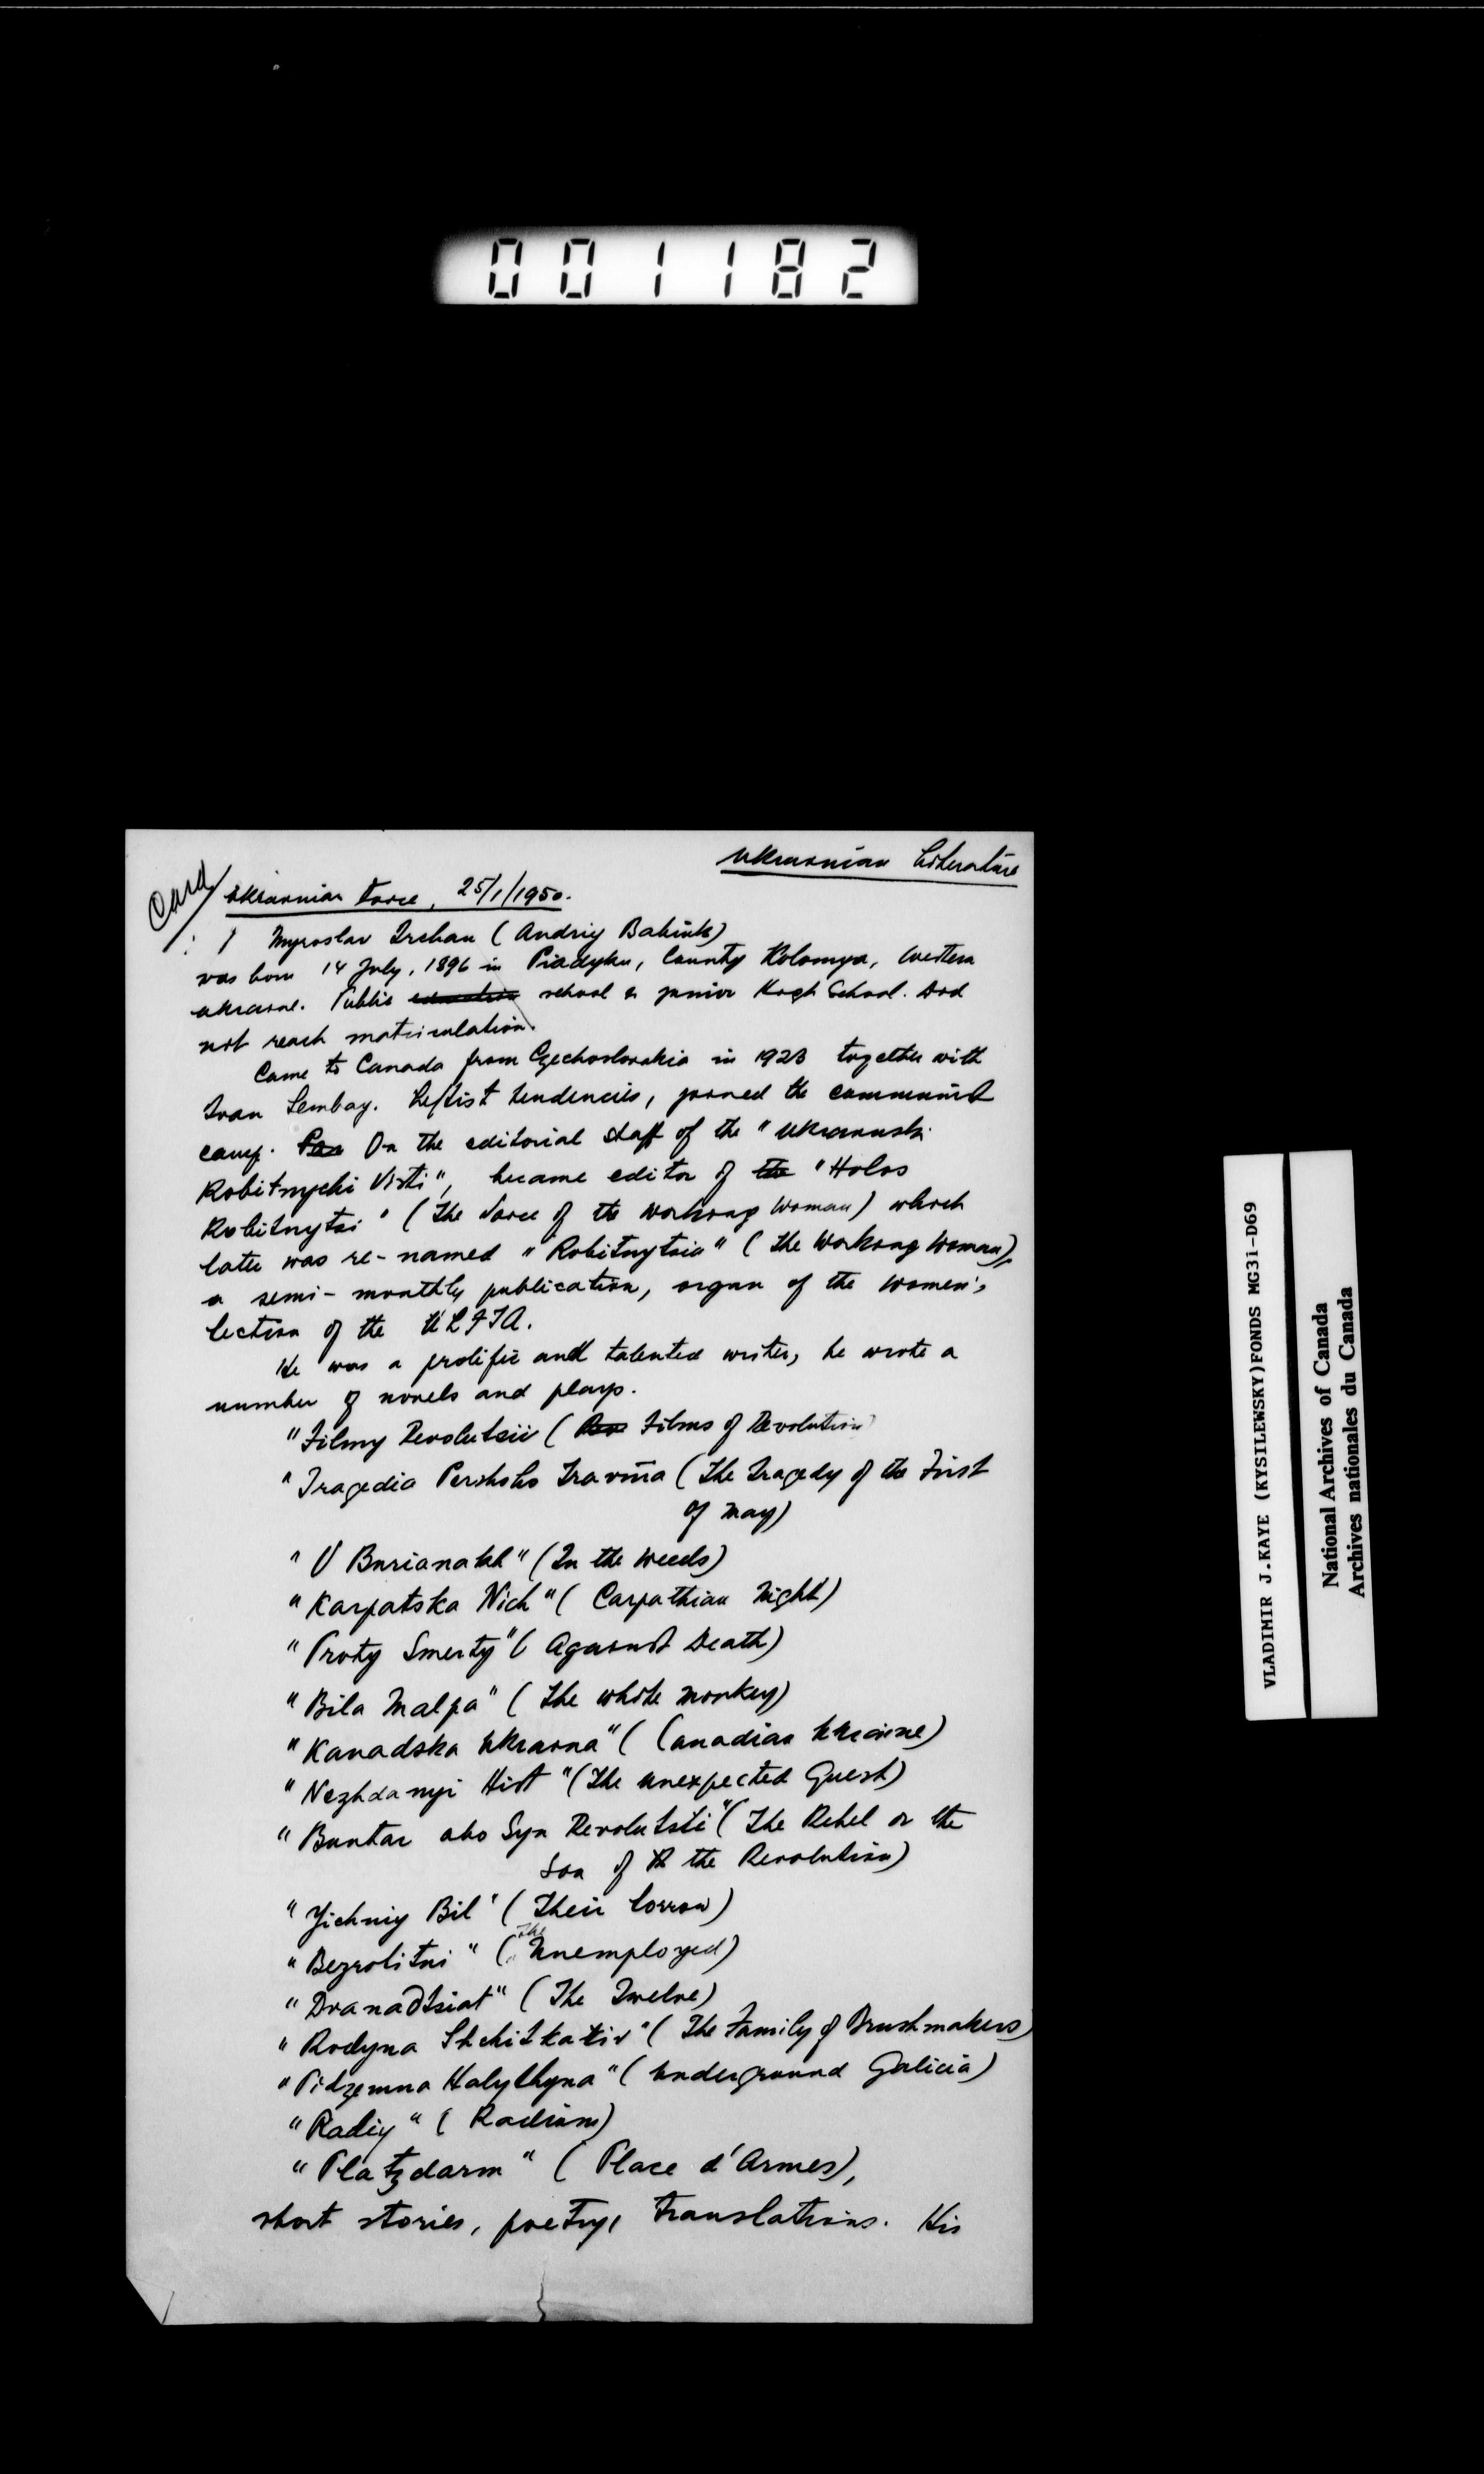 001182
Ukrainian Literature
Card
Ukrainian Voice, 25/1/1950.
Myroslav Irchan (Andriy Babiuk)
was born 14 July, 1896 in Piadyky, County Kolomya, Western
Ukraine. Public education school & junior High School. Did
not reach matriculation.
Came to Canada from Czechoslovakia in 1923 together with
Ivan Sembay. Leftist tendencies, joined the communist
camp. On the editorial staff of the "Ukrainski
Robitnychi Visti", became editor of the "Holos
Robitnytsi" (The Voice of the Working Woman) which
later was re-named "Robitnytsia" (The Working Woman),
a semi-monthly publication, organ of the Women's
Section of the ULFTA.
He was a prolific and talented writer, he wrote a
number of novels and plays.
"Filmy Revolutsii (Films of Revolution)
"Tragedia Pershoho Travnia (The Tragedy of the First
of May)
"V Burianakh" (In the Weeds)
"Karpatska Nich" (Carpathian Night)
"Proty Smerty" (Against Death)
"Bila Malpa" (The White Monkey)
"Kanadska Ukraina" (Canadian Ukraine)
"Nezhdanyi Hist" (The Unexpected Guest)
"Buntar abo Syn Revolutsii" (The Rebel or the
Son of the Revolution)
"Yichniy Bil" (Their Sorrow)
"Bezrobitni" (The Unemployed)
"Dvanadtsiat" (The Twelve)
"Rodyna Shchitkariv" (The Family of Brushmakers)
"Pidzemna Halychyna" (Underground Galicia)
"Radiy" (Radium)
"Platzdarm" (Place d'Armes),
short stories, poetry, translations. His
VLADIMIR J.KAYE (KYSILEWSKY)FONDS MG31-D69
National Archives of Canada
Archives nationales du Canada